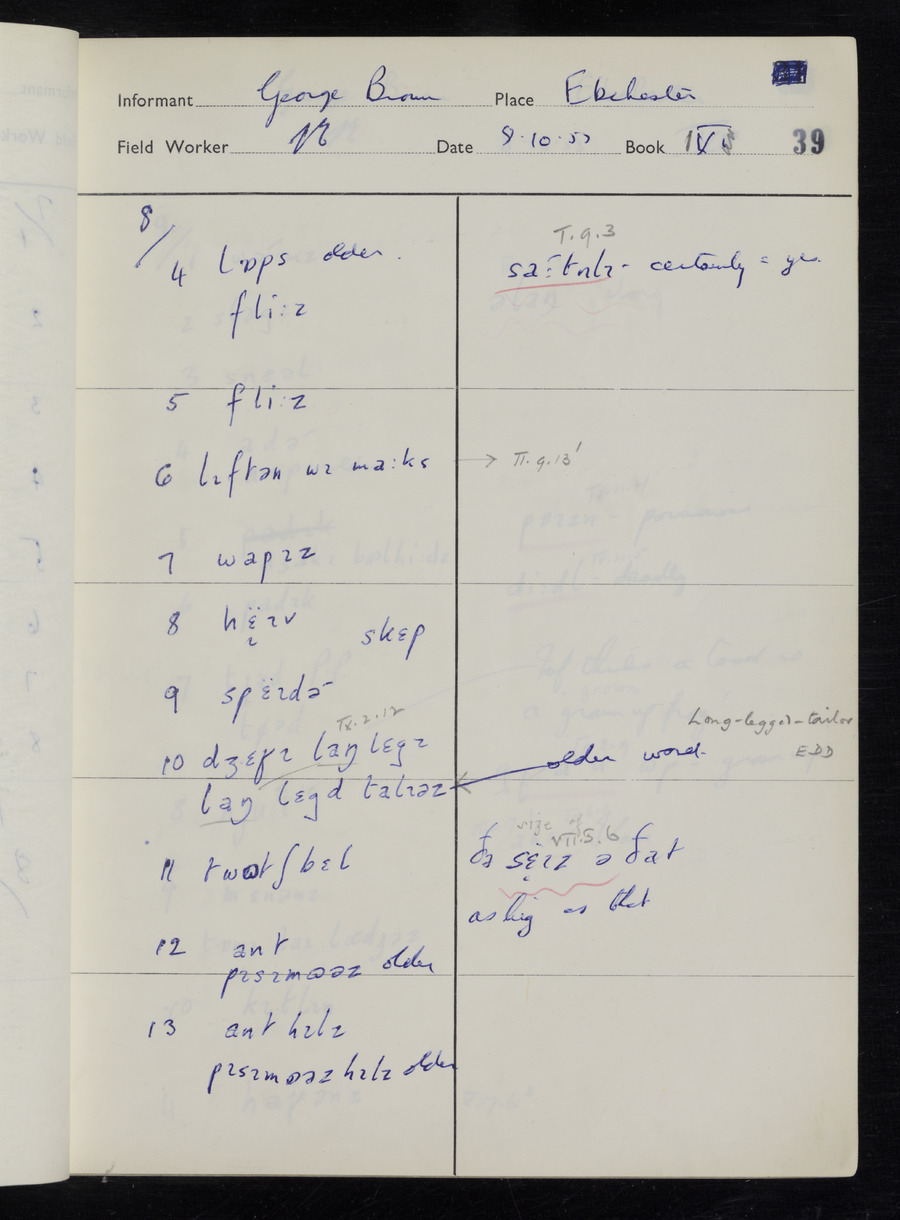 Informant George Brown Place Ebchester
Field Worker Date 8·10·53 Book IV 39
8/
4 lɒps older.
fli:z
T.9.3
sa:tnlɪ - certainly = yes.
5 fli:z
6 lɪftən wɪ ma:ks → II.9.13'
7 wapɪz
8 hɛ̈ɪv skɛp
9 spɛ̈ɪdə
IX.2.12
10 dʒɛfɪ laŋ lɛgɪ
Long-legged-tailor
EDD
laŋ lɛgd talɪəz ← older word.
11 twɒtʃbɛl
size of
VII.5.6
ðə sɛ̈ɪz ə ðat
as big as that
12 ant
pɪsɪməəz older
13 ant hɪlz
pɪsɪməəz hɪlz older